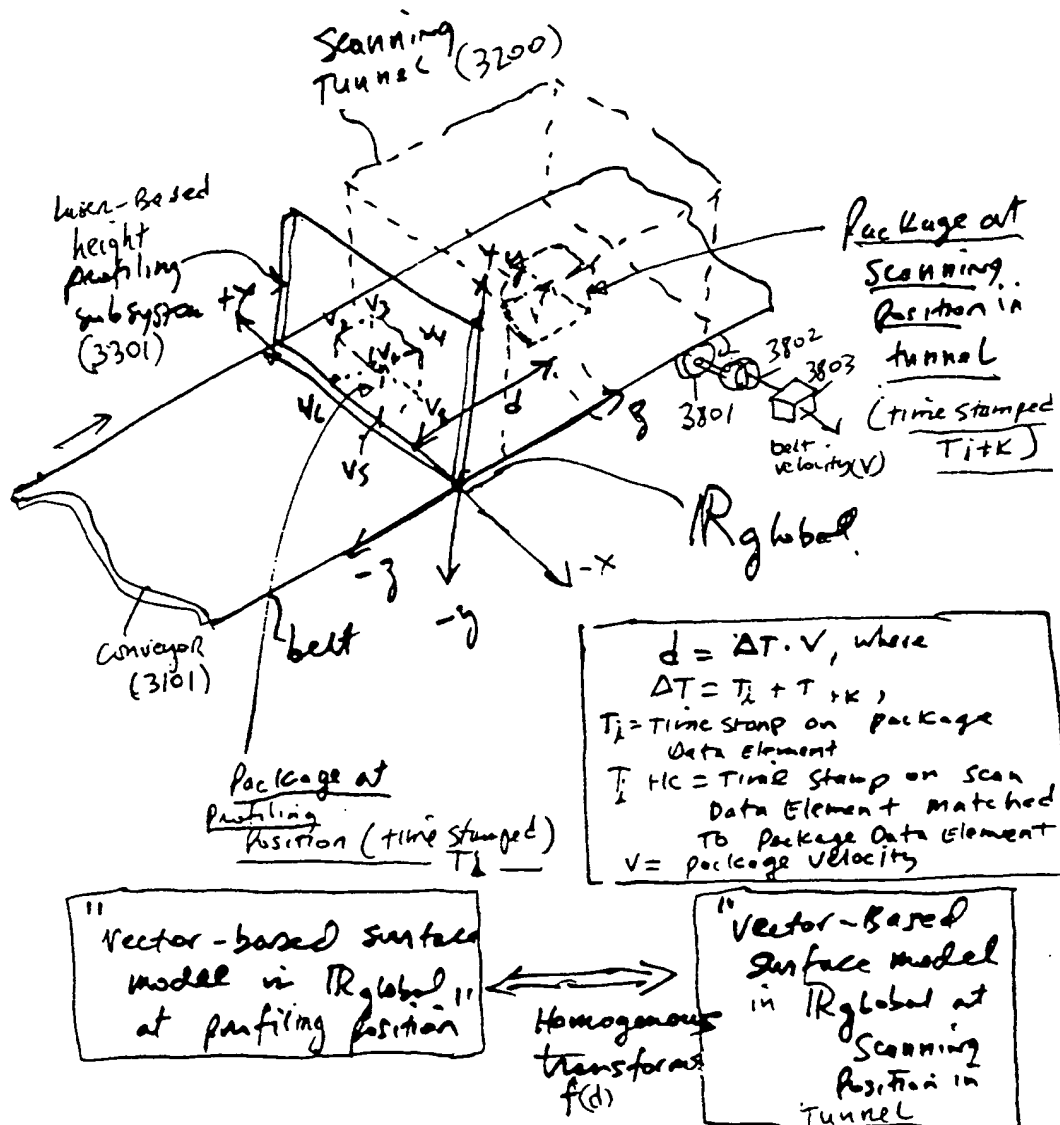 Scanning
Tunnel (3200)
Laser-Based
height
profiling
subsystem
(3301)
+x
V2
V3
V4
V6
V5
y
d
z
Package at
Scanning
Position in
tunnel
(time stamped
Ti+K)
3801
3802
3803
belt
velocity (V)
Rglobal
-x
-z
-y
Conveyor
(3101)
belt
d = ΔT · V, where
ΔT = Ti + T+K,
Ti = Time stamp on package
Data Element
Ti +K = Time stamp on scan
Data Element matched
To package Data Element
V = package velocity
Package at
Profiling
Position (time stamped)
Ti
"Vector-based surface
model in Rglobal
at profiling position"
Homogenous
transform
f(d)
"Vector-Based
surface model
in Rglobal at
Scanning
Position in
Tunnel